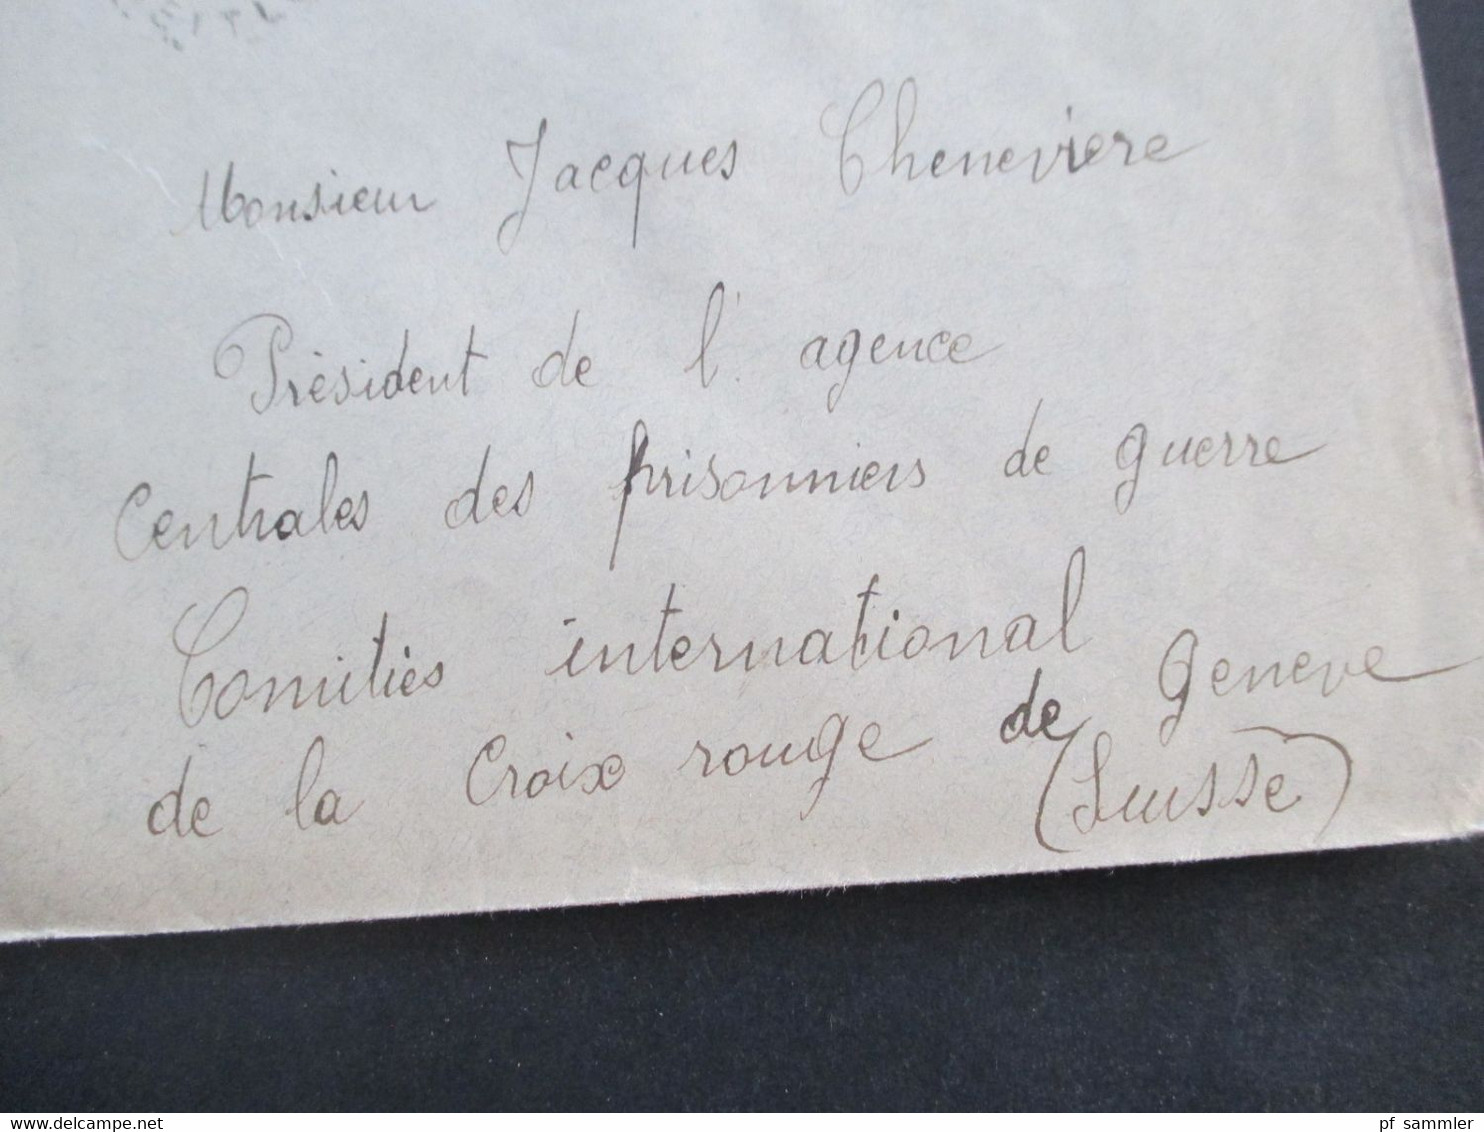 Monsieur Jacques Cheneviere
Président de l'agence
Centrales des prisonniers de guerre
Comitiés international
de la Croix rouge de Geneve
(Suisse)
pf sammler
www.delcampe.net